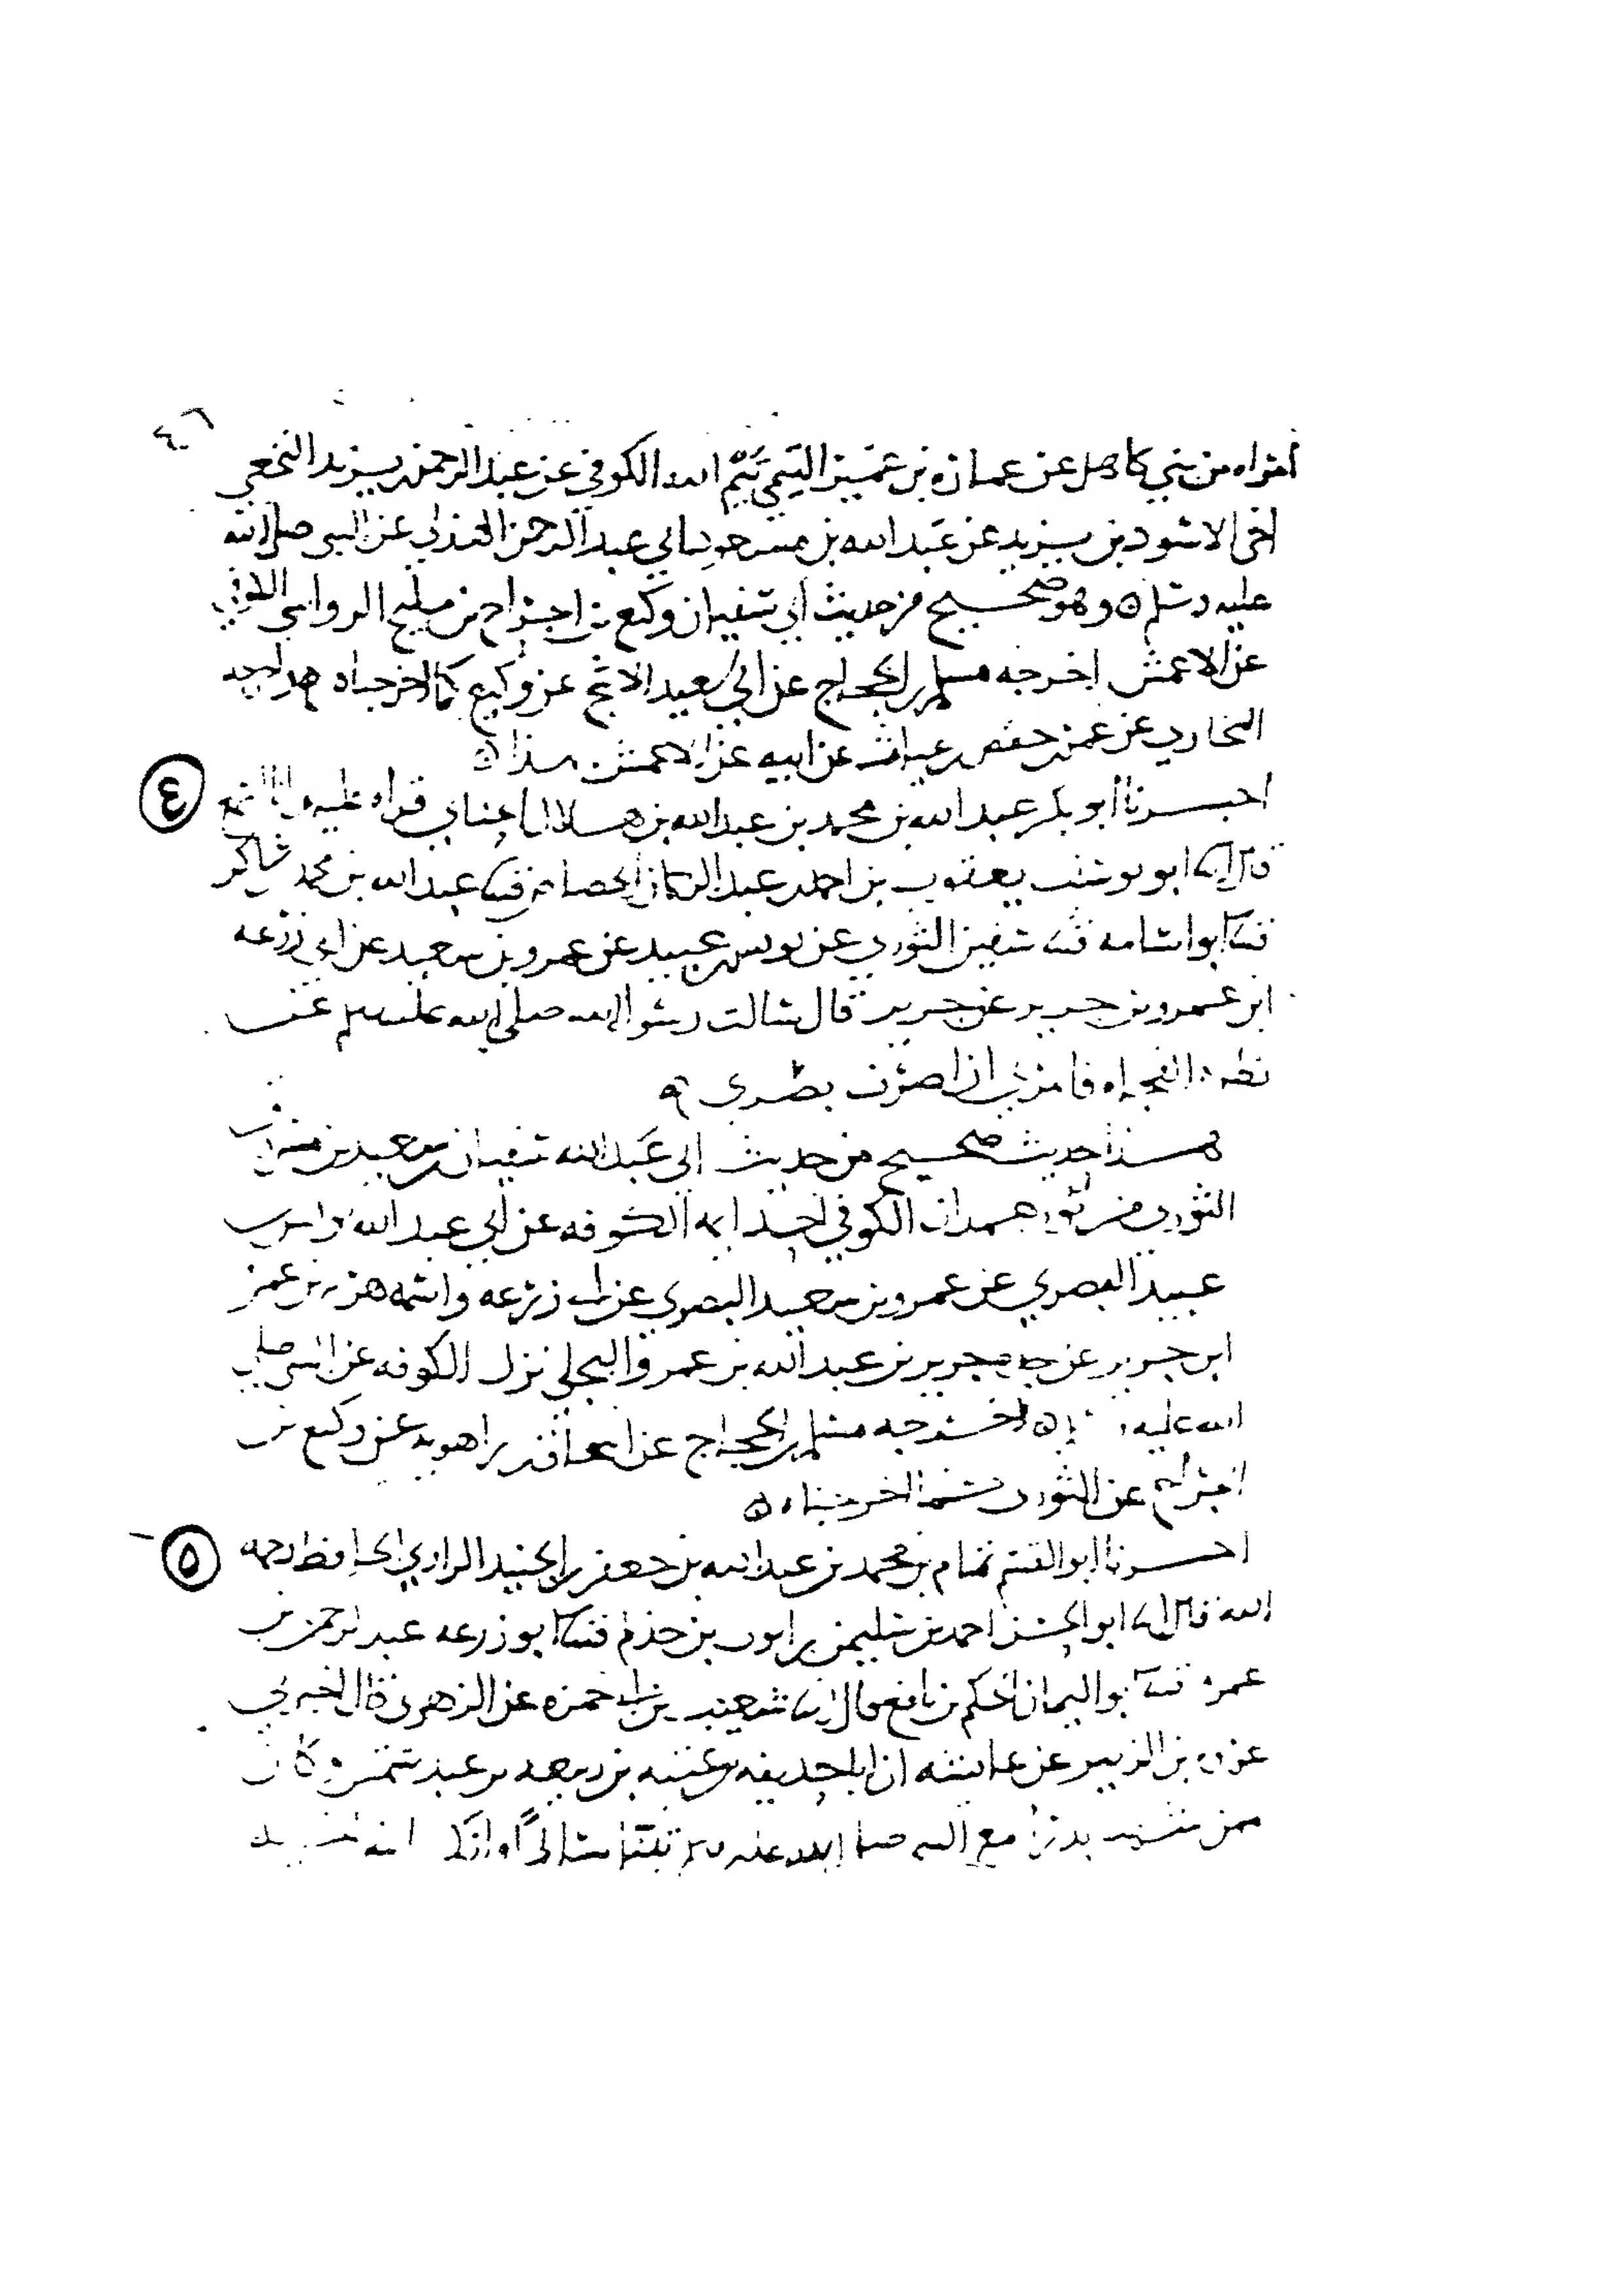 ٤٦
امراه من بني كاهل عن عماره بن عمير التيمي تيم الله الكوفي عن عبد الرحمن بن يزيد النخعي
اخي الاسود بن يزيد عن عبد الله بن مسعود ابي عبد الرحمن الهذلي عن النبي صلى الله
عليه وسلم ٥ وهو صحيح من حديث ابي سفيان وكيع بن الجراح بن مليح الرواسي الكوفي
عن الاعمش اخرجه مسلم بن الحجاج عن ابي سعيد الاشج عن وكيع كما اخرجناه
البخاري عن عمر بن حفص بن غياث عن ابيه عن الاعمش هذا ٥
٤
اخبرنا ابو بكر عبد الله بن محمد بن عبد الله بن هلال الحنائي قراه عليه وانا اسمع
قال ابنا ابو يوسف يعقوب بن احمد بن عبد الرحمن الجصاص ثنا عبد الله بن محمد بن شاكر
ثنا ابو اسامه ثنا سفين الثوري عن يونس بن عبيد عن عمرو بن سعيد عن ابي زرعه
ابن عمرو بن جرير عن جرير قال سالت رسول الله صلى الله عليه وسلم عن
نظره الفجاه فامرني ان اصرف بصري ٥
هذا حديث صحيح من حديث ابي عبد الله سفيان بن سعيد بن مسروق
الثوري من ثور همدان الكوفي احد ايمه الكوفه عن ابي عبد الله يونس بن
عبيد البصري عن عمرو بن سعيد البصري عن ابي زرعه واسمه هرم بن عمرو
ابن جرير عن جده جرير بن عبد الله بن عمرو البجلي نزل الكوفه عن النبي صلى
الله عليه وسلم ٥ اخرجه مسلم بن الحجاج عن اسحاق بن راهويه عن وكيع بن
الجراح عن الثوري كما اخرجناه ٥
٥
اخبرنا ابو القسم تمام بن محمد بن عبد الله بن جعفر بن الجنيد الرازي الحافظ رحمه
الله قال ابنا ابو الحسن احمد بن سليمن بن ايوب بن حذلم ثنا ابو زرعه عبد الرحمن بن
عمرو ثنا ابو اليمان الحكم بن نافع قال ابنا شعيب بن ابي حمزه عن الزهري قال اخبرني
عروه بن الزبير عن عايشه ان ابا حذيفه بن عتبه بن ربيعه بن عبد شمس وكان
ممن شهد بدرا مع النبي صلى الله عليه وسلم تبنا سالما وانكحه ابنه